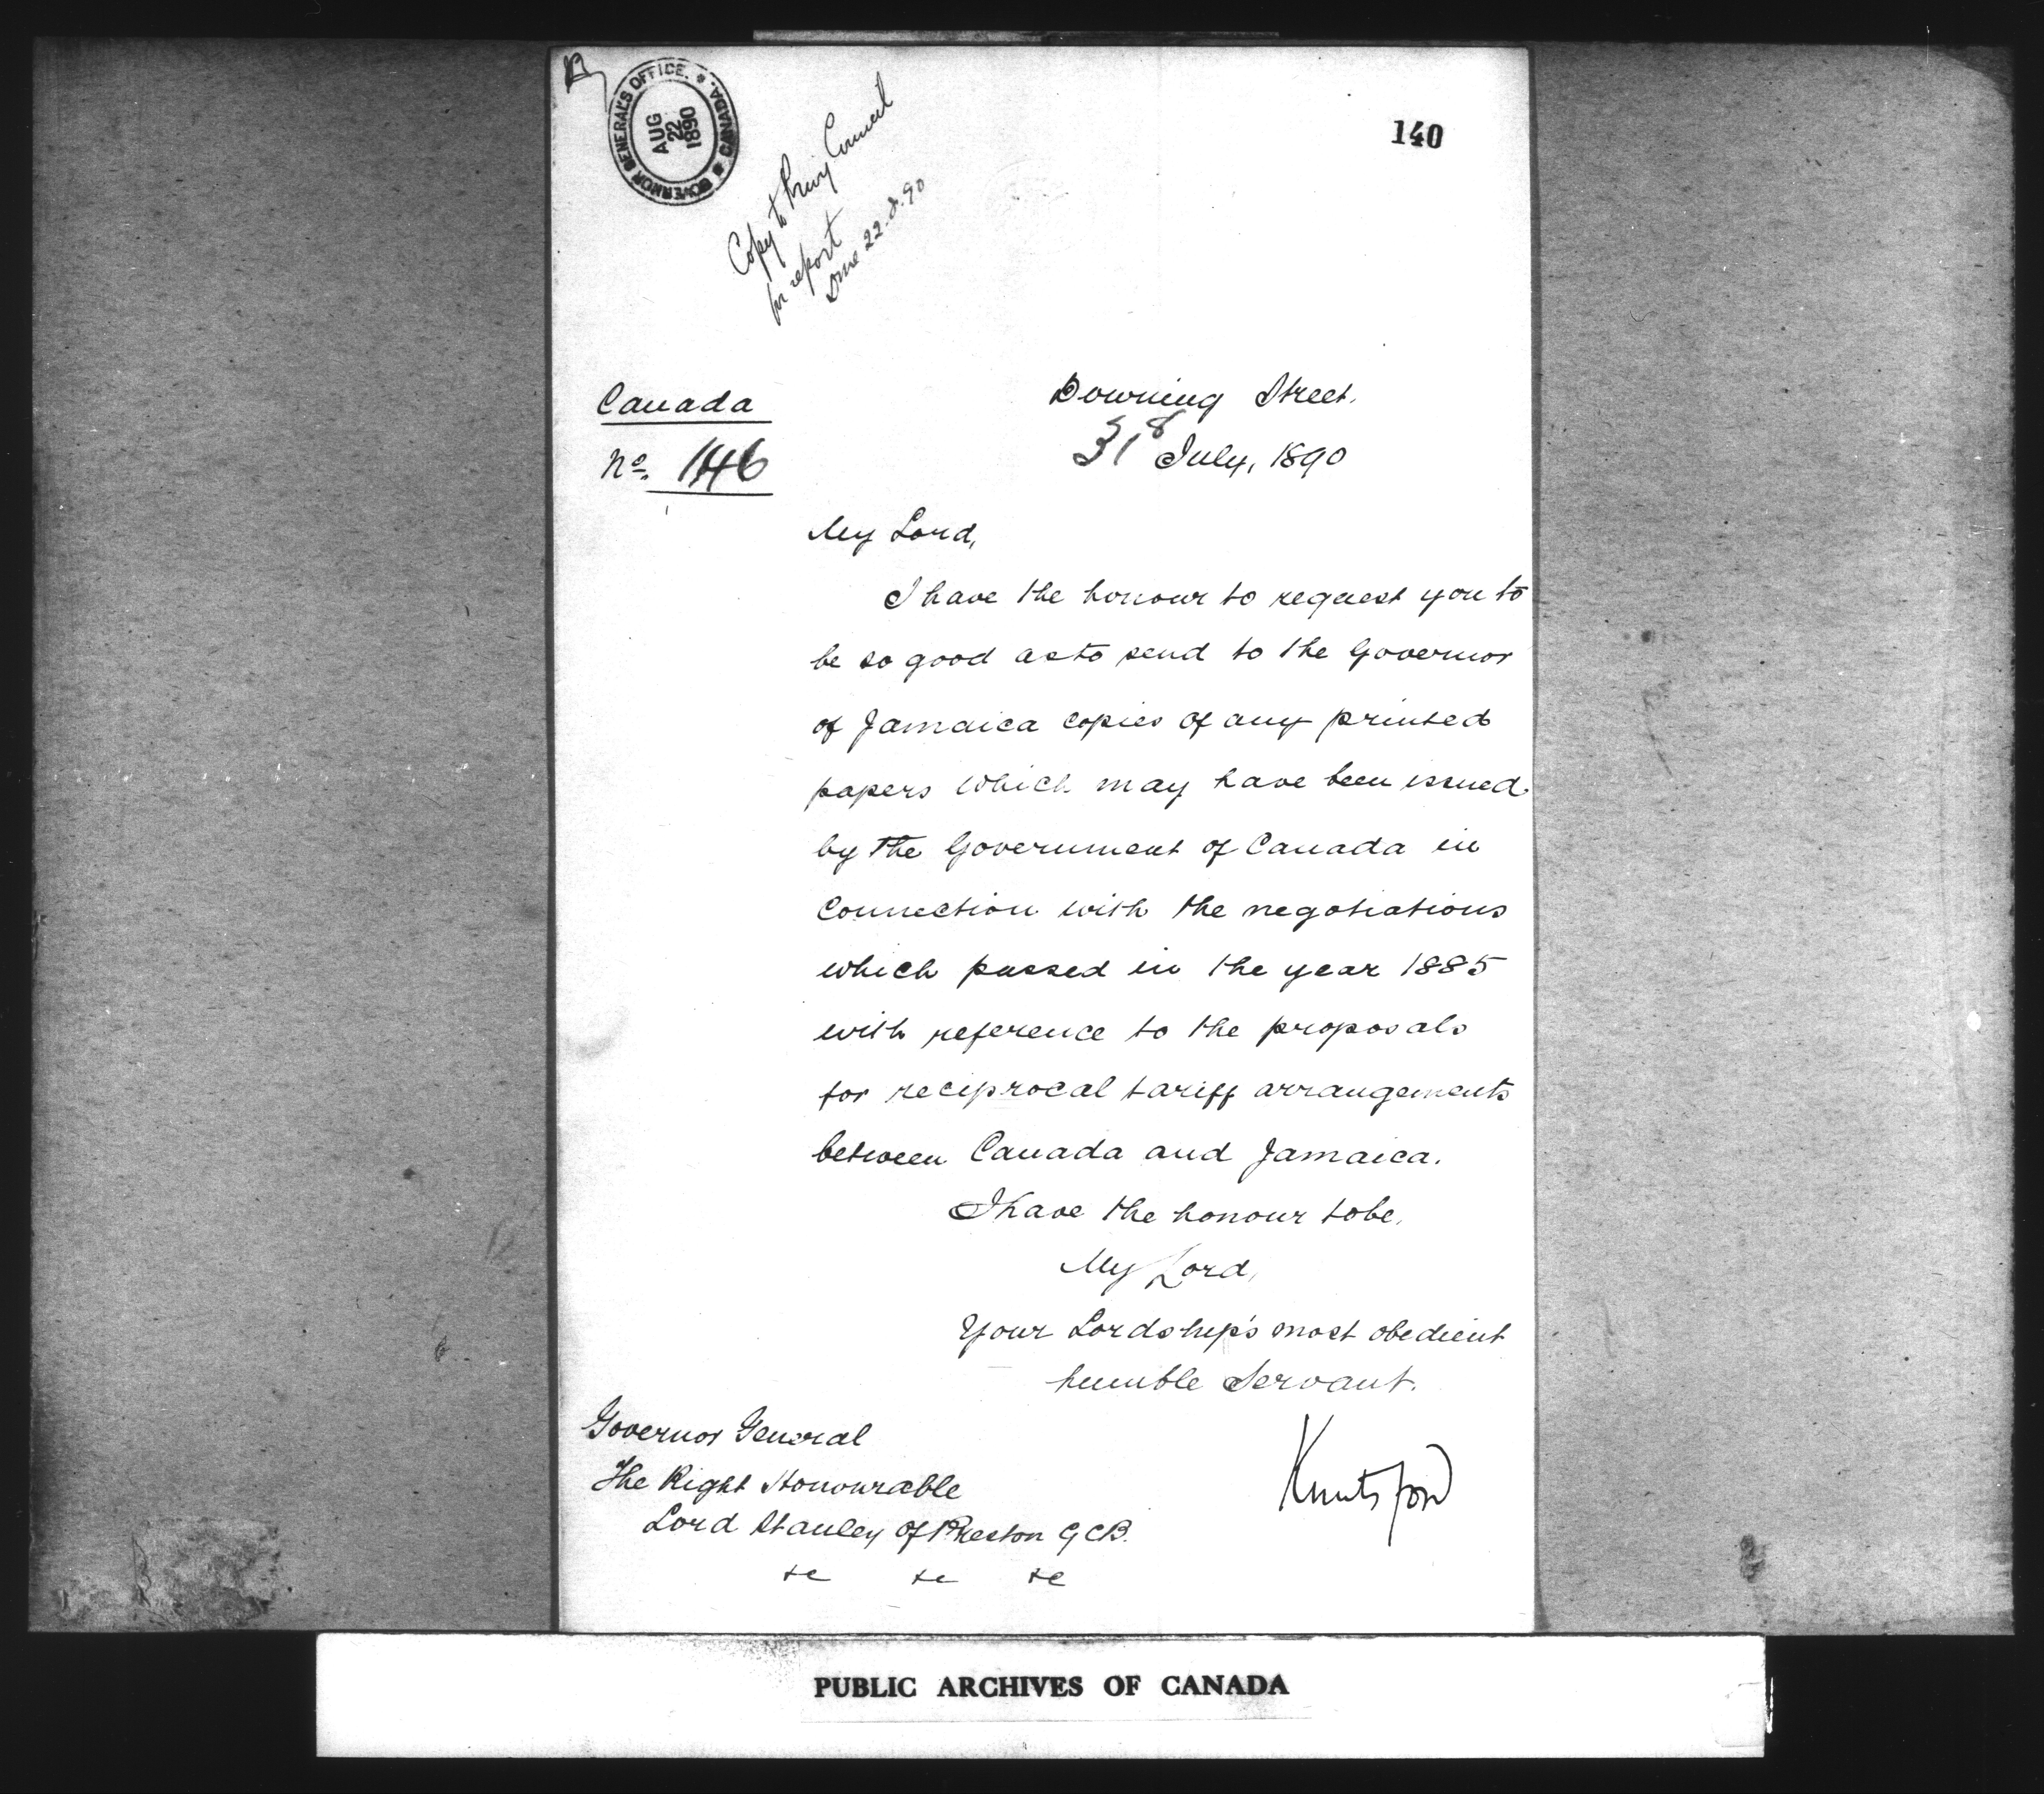 GOVERNOR GENERAL'S OFFICE. * CANADA. *
AUG
22
1890
140
Copy to Privy Council
for report
Done 22.8.90
Canada
No. 146
Downing Street.
31 July, 1890
My Lord,
I have the honour to request you to
be so good as to send to the Governor
of Jamaica copies of any printed
papers which may have been issued
by the Government of Canada in
connection with the negotiations
which passed in the year 1885
with reference to the proposals
for reciprocal tariff arrangements
between Canada and Jamaica.
I have the honour to be,
My Lord,
Your Lordship's most obedient
humble Servant.
Knutsford
Governor General
The Right Honourable
Lord Stanley of Preston GCB.
&c &c &c
PUBLIC ARCHIVES OF CANADA